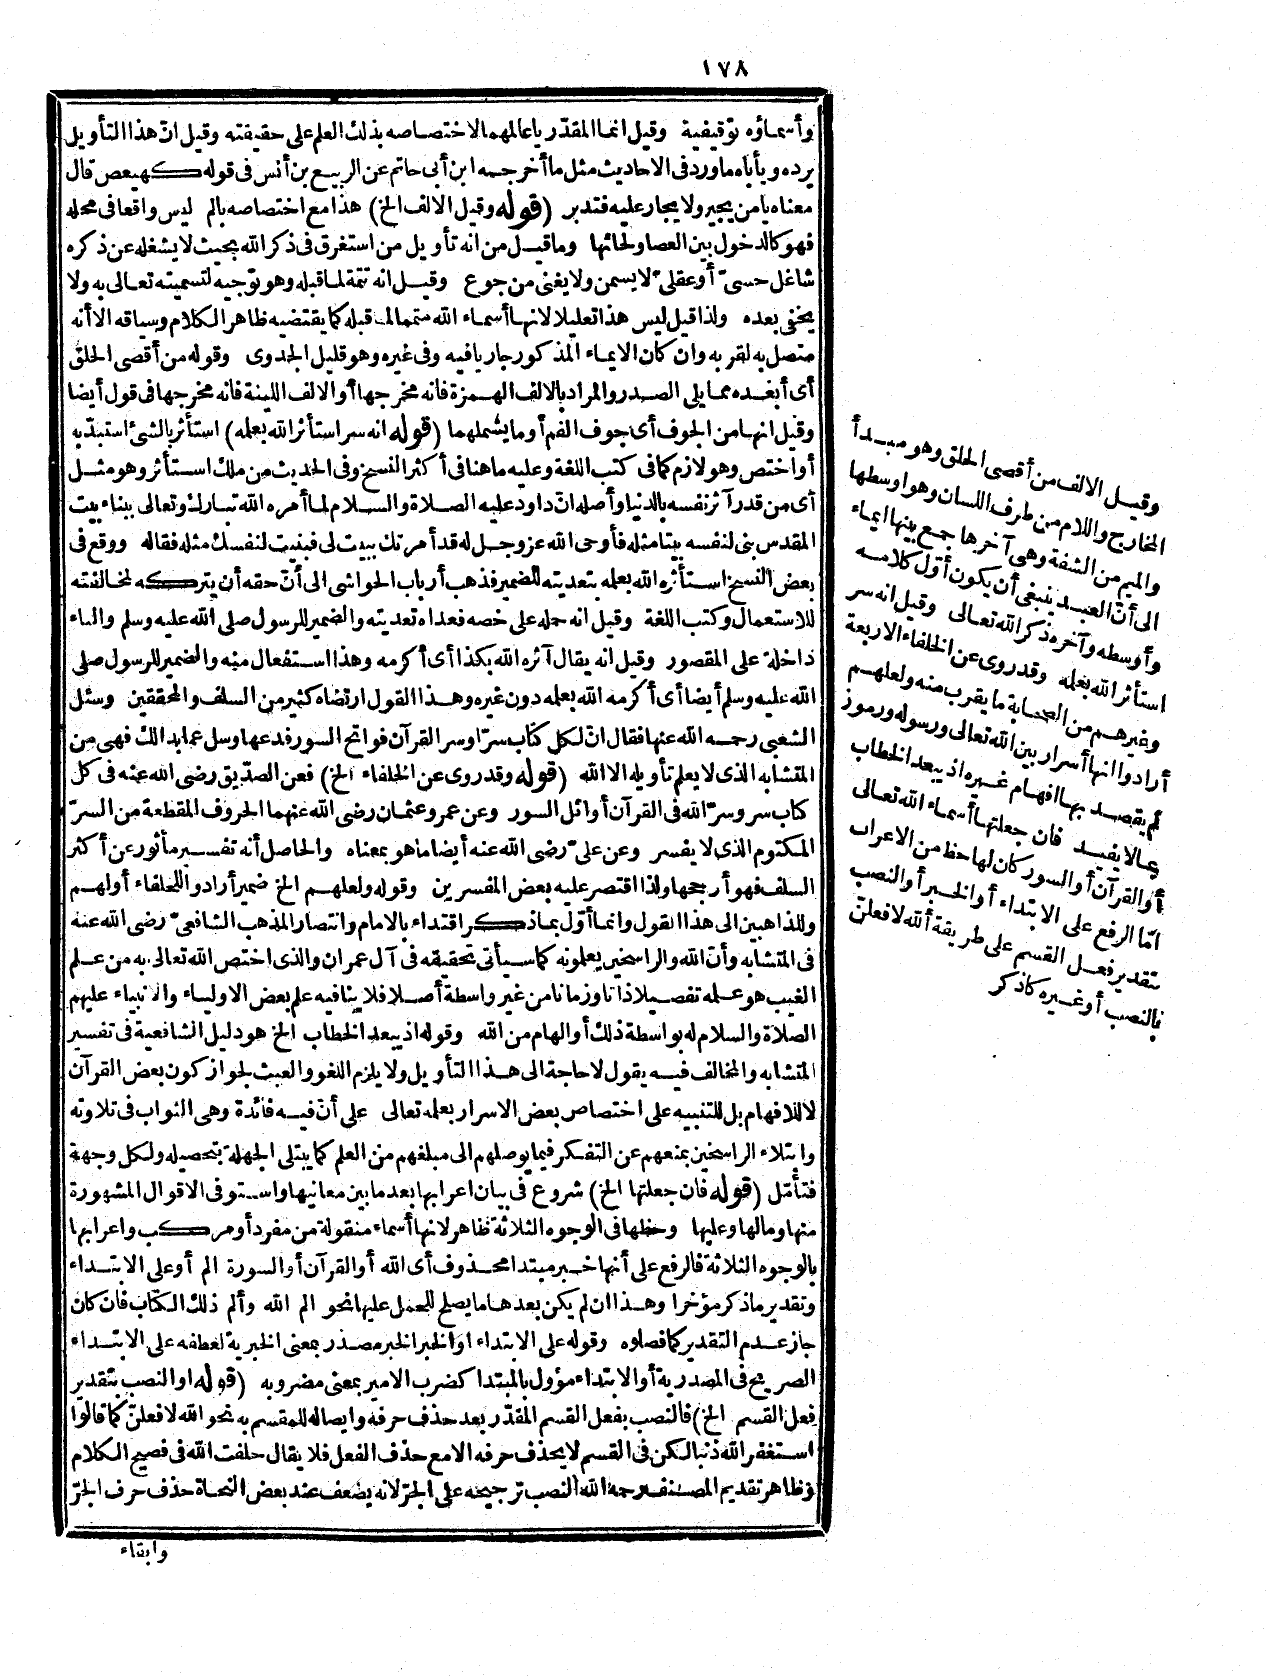 ١٧٨
وأسماؤه توقيفية وقيل انما المقدر ياعالمهما لاختصاصه بذلك العلم على حقيقته وقيل انّ هذا التأويل
يرده ويأباه ما ورد فى الاحاديث مثل ما أخرجه ابن أبى حاتم عن الربيع بن أنس فى قوله كهيعص قال
معناه يا من يجير ولا يجار عليه فتدبر (قوله وقيل الالف الخ) هذا مع اختصاصه بالم ليس واقعا فى محله
فهو كالدخول بين العصا ولحائها وما قيل من انه تأويل من استغرق فى ذكر الله بحيث لا يشغله عن ذكره
شاغل حسىّ أو عقلىّ لا يسمن ولا يغنى من جوع وقيل انه تتمة لما قبله وهو توجيه لتسميته تعالى به ولا
يخفى بعده ولذا قيل ليس هذا تعليلا لانها أسماء الله متمما لما قبله كما يقتضيه ظاهر الكلام وسياقه الا أنه
متصل به لقربه وان كان الايماء المذكور جاريا فيه وفى غيره وهو قليل الجدوى وقوله من أقصى الحلق
أى أبعده مما يلى الصدر والمراد بالالف الهمزة فانه مخرجها أو الالف اللينة فانه مخرجها فى قول أيضا
وقيل انها من الجوف أى جوف الفم أو ما يشملهما (قوله انه سر استأثر الله بعلمه) استأثر بالشئ استبدّ به
أو اختص وهو لازم كما فى كتب اللغة وعليه ما هنا فى أكثر النسخ وفى الحديث من ملك استأثر وهو مثل
أى من قدر آثر نفسه بالدنيا وأصله انّ داود عليه الصلاة والسلام لما أمره الله تبارك وتعالى ببناء بيت
المقدس بنى لنفسه بيتا مثله فأوحى الله عز وجل له قد أمرتك ببيت لى فبنيت لنفسك مثله فقاله ووقع فى
بعض النسخ استأثره الله بعلمه بتعديته للضمير فذهب أرباب الحواشى الى أنّ حقه أن يتركه لمخالفته
للاستعمال وكتب اللغة وقيل انه حمله على خصه فعداه تعديته والضمير للرسول صلى الله عليه وسلم والباء
داخلة على المقصور وقيل انه يقال آثره الله بكذا أى أكرمه وهذا استفعال منه والضمير للرسول صلى
الله عليه وسلم أيضا أى أكرمه الله بعلمه دون غيره وهذا القول ارتضاه كثير من السلف والمحققين وسئل
الشعبى رحمه الله عنها فقال انّ لكل كتاب سرّا وسر القرآن فواتح السور فدعها وسل عما بدا لك فهى من
المتشابه الذى لا يعلم تأويله الا الله (قوله وقد روى عن الخلفاء الخ) فعن الصدّيق رضى الله عنه فى كل
كتاب سر وسرّ الله فى القرآن أوائل السور وعن عمر وعثمان رضى الله عنهما الحروف المقطعة من السرّ
المكتوم الذى لا يفسر وعن علىّ رضى الله عنه أيضا ما هو بمعناه والحاصل أنه تفسير مأثور عن أكثر
السلف فهو أرجحها ولذا اقتصر عليه بعض المفسرين وقوله ولعلهم الخ ضمير أرادوا للخلفاء أو لهم
وللذاهبين الى هذا القول وانما أوّل بما ذكر اقتداء بالامام وانتصارا لمذهب الشافعىّ رضى الله عنه
فى المتشابه وأن الله والراسخين يعلمونه كما سيأتى تحقيقه فى آل عمران والذى اختص الله تعالى به من علم
الغيب هو علمه تفصيلا ذاتا وزمانا من غير واسطة أصلا فلا ينافيه علم بعض الاولياء والانبياء عليهم
الصلاة والسلام له بواسطة ذلك أو الهام من الله وقوله اذ يبعد الخطاب الخ هو دليل الشافعية فى تفسير
المتشابه والمخالف فيه يقول لا حاجة الى هذا التأويل ولا يلزم اللغو والعبث لجواز كون بعض القرآن
لا للافهام بل للتنبيه على اختصاص بعض الاسرار بعلمه تعالى على أنّ فيه فائدة وهى الثواب فى تلاوته
وابتلاء الراسخين بمنعهم عن التفكر فيما يوصلهم الى مبلغهم من العلم كما يبتلى الجهلة بتحصيله ولكل وجهة
فتأمّل (قوله فان جعلتها الخ) شروع فى بيان اعرابها بعد ما بين معانيها واستوفى الاقوال المشهورة
منها وما لها وعليها وحظها فى الوجوه الثلاثة ظاهر لانها أسماء منقولة من مفرد أو مركب واعرابها
بالوجوه الثلاثة فالرفع على أنها خبر مبتدا محذوف أى الله أو القرآن أو السورة الم أو على الابتداء
وتقدير ما ذكر مؤخرا وهذا ان لم يكن بعدها ما يصلح للحمل عليها نحو الم الله وألم ذلك الكتاب فان كان
جاز عدم التقدير كما فصلوه وقوله على الابتداء او الخبر الخبر مصدر بمعنى الخبرية لعطفه على الابتداء
الصريح فى المصدرية أو الابتداء مؤول بالمبتدا كضرب الامير بمعنى مضروبه (قوله او النصب بتقدير
فعل القسم الخ) فالنصب بفعل القسم المقدّر بعد حذف حرفه وايصاله للمقسم به نحو الله لافعلنّ كما قالوا
استغفر الله ذنبا لكن فى القسم لا يحذف حرفه الا مع حذف الفعل فلا يقال حلفت الله فى فصيح الكلام
وظاهر تقديم المصنف رحمه الله النصب ترجيحه على الجرّ لانه يضعف عند بعض النحاة حذف حرف الجرّ
وابقاء
وقيل الالف من أقصى الحلق وهو مبدأ
المخارج واللام من طرف اللسان وهو اوسطها
والميم من الشفة وهى آخرها جمع بينها ايماء
الى أنّ العبد ينبغى أن يكون أوّل كلامه
وأوسطه وآخره ذكر الله تعالى وقيل انه سر
استأثر الله بعلمه وقد روى عن الخلفاء الاربعة
وغيرهم من الصحابة ما يقرب منه ولعلهم
أرادوا انها أسرار بين الله تعالى ورسوله ورموز
لم يقصد بها افهام غيره اذ يبعد الخطاب
بما لا يفيد فان جعلتها أسماء الله تعالى
أو القرآن أو السور كان لها حظ من الاعراب
امّا الرفع على الابتداء أو الخبر أو النصب
بتقدير فعل القسم على طريقة ألله لافعلنّ
بالنصب أو غيره كاذكر